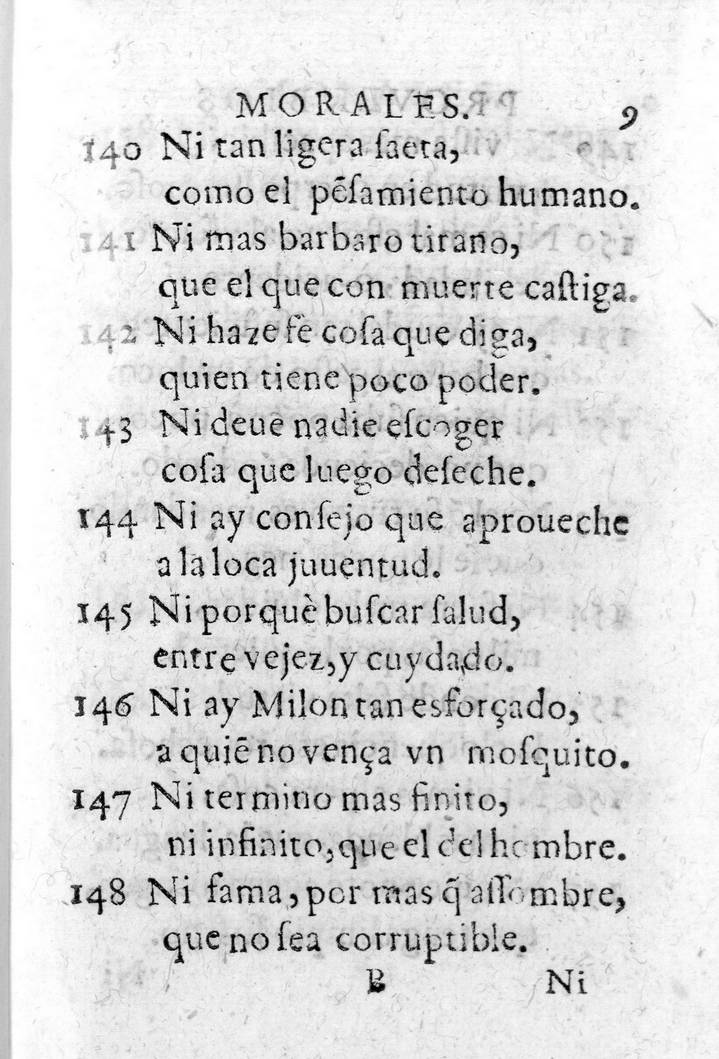 MORALES. 9
140 Ni tan ligera ſaeta,
como el pẽſamiento humano.
141 Ni mas barbaro tirano,
que el que con muerte caſtiga.
142 Ni haze fè coſa que diga,
quien tiene poco poder.
143 Ni deue nadie eſcoger
coſa que luego deſeche.
144 Ni ay conſejo que aproueche
a la loca juuentud.
145 Ni porquè buſcar ſalud,
entre vejez, y cuydado.
146 Ni ay Milon tan esforçado,
a quiẽ no vença vn moſquito.
147 Ni termino mas finito,
ni infinito, que el del hombre.
148 Ni fama, por mas q̃ aſſombre,
que no ſea corruptible.
B Ni